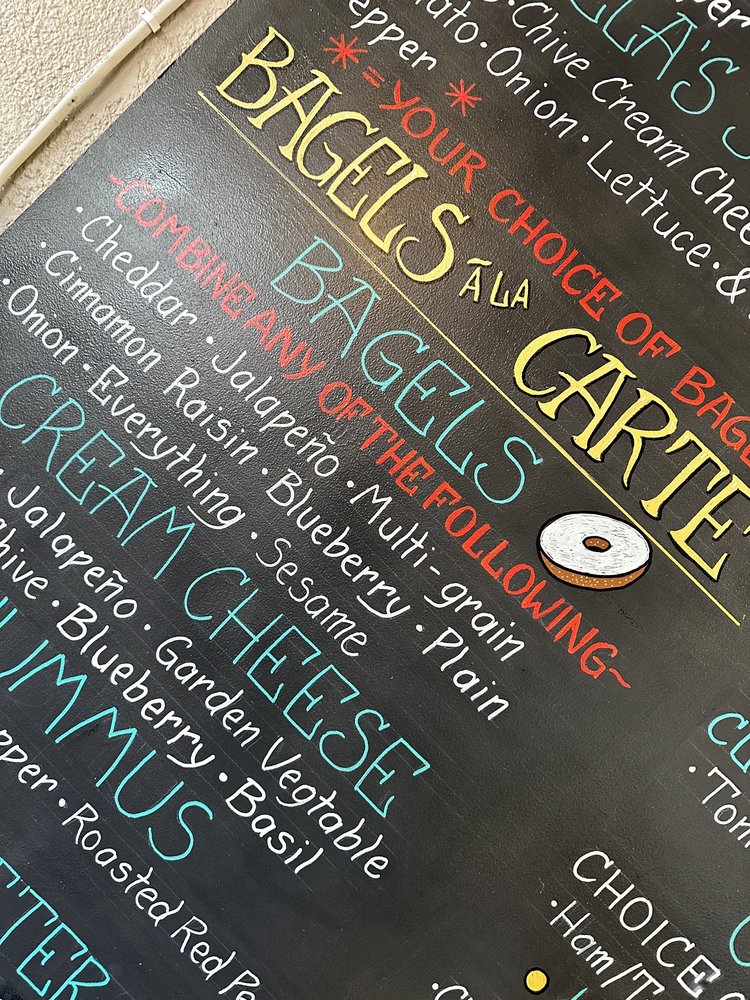 LLA'S
Chive Cream Chee
ato · Onion · Lettuce · &
epper *
* = YOUR CHOICE OF BAGE
BAGELS À LA CARTE
BAGELS
~COMBINE ANY OF THE FOLLOWING~
· Cheddar · Jalapeño · Multi-grain
· Cinnamon Raisin · Blueberry · Plain
· Onion · Everything · Sesame
CREAM CHEESE
· Jalapeño · Garden Vegtable
hive · Blueberry · Basil
UMMUS
pper · Roasted Red Pe
TTER
CHOICE
· Ham/T
· Tom